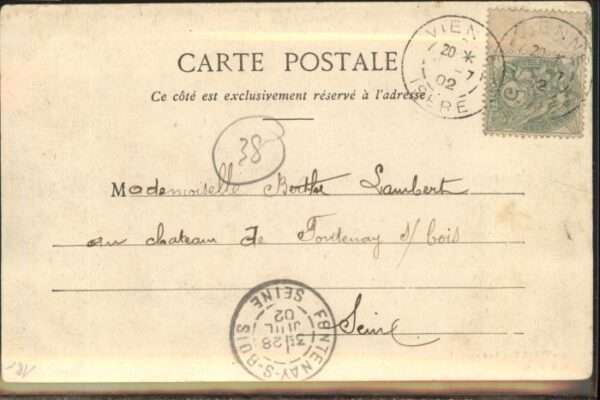 CARTE POSTALE
Ce côté est exclusivement réservé à l'adresse
VIENNE
20 *
-7
02
ISÈRE
38
Mademoiselle Berthe Lambert
au chateau de Fontenay s/bois
Seine
FONTENAY-S-BOIS
3E 28
JUIL
02
SEINE